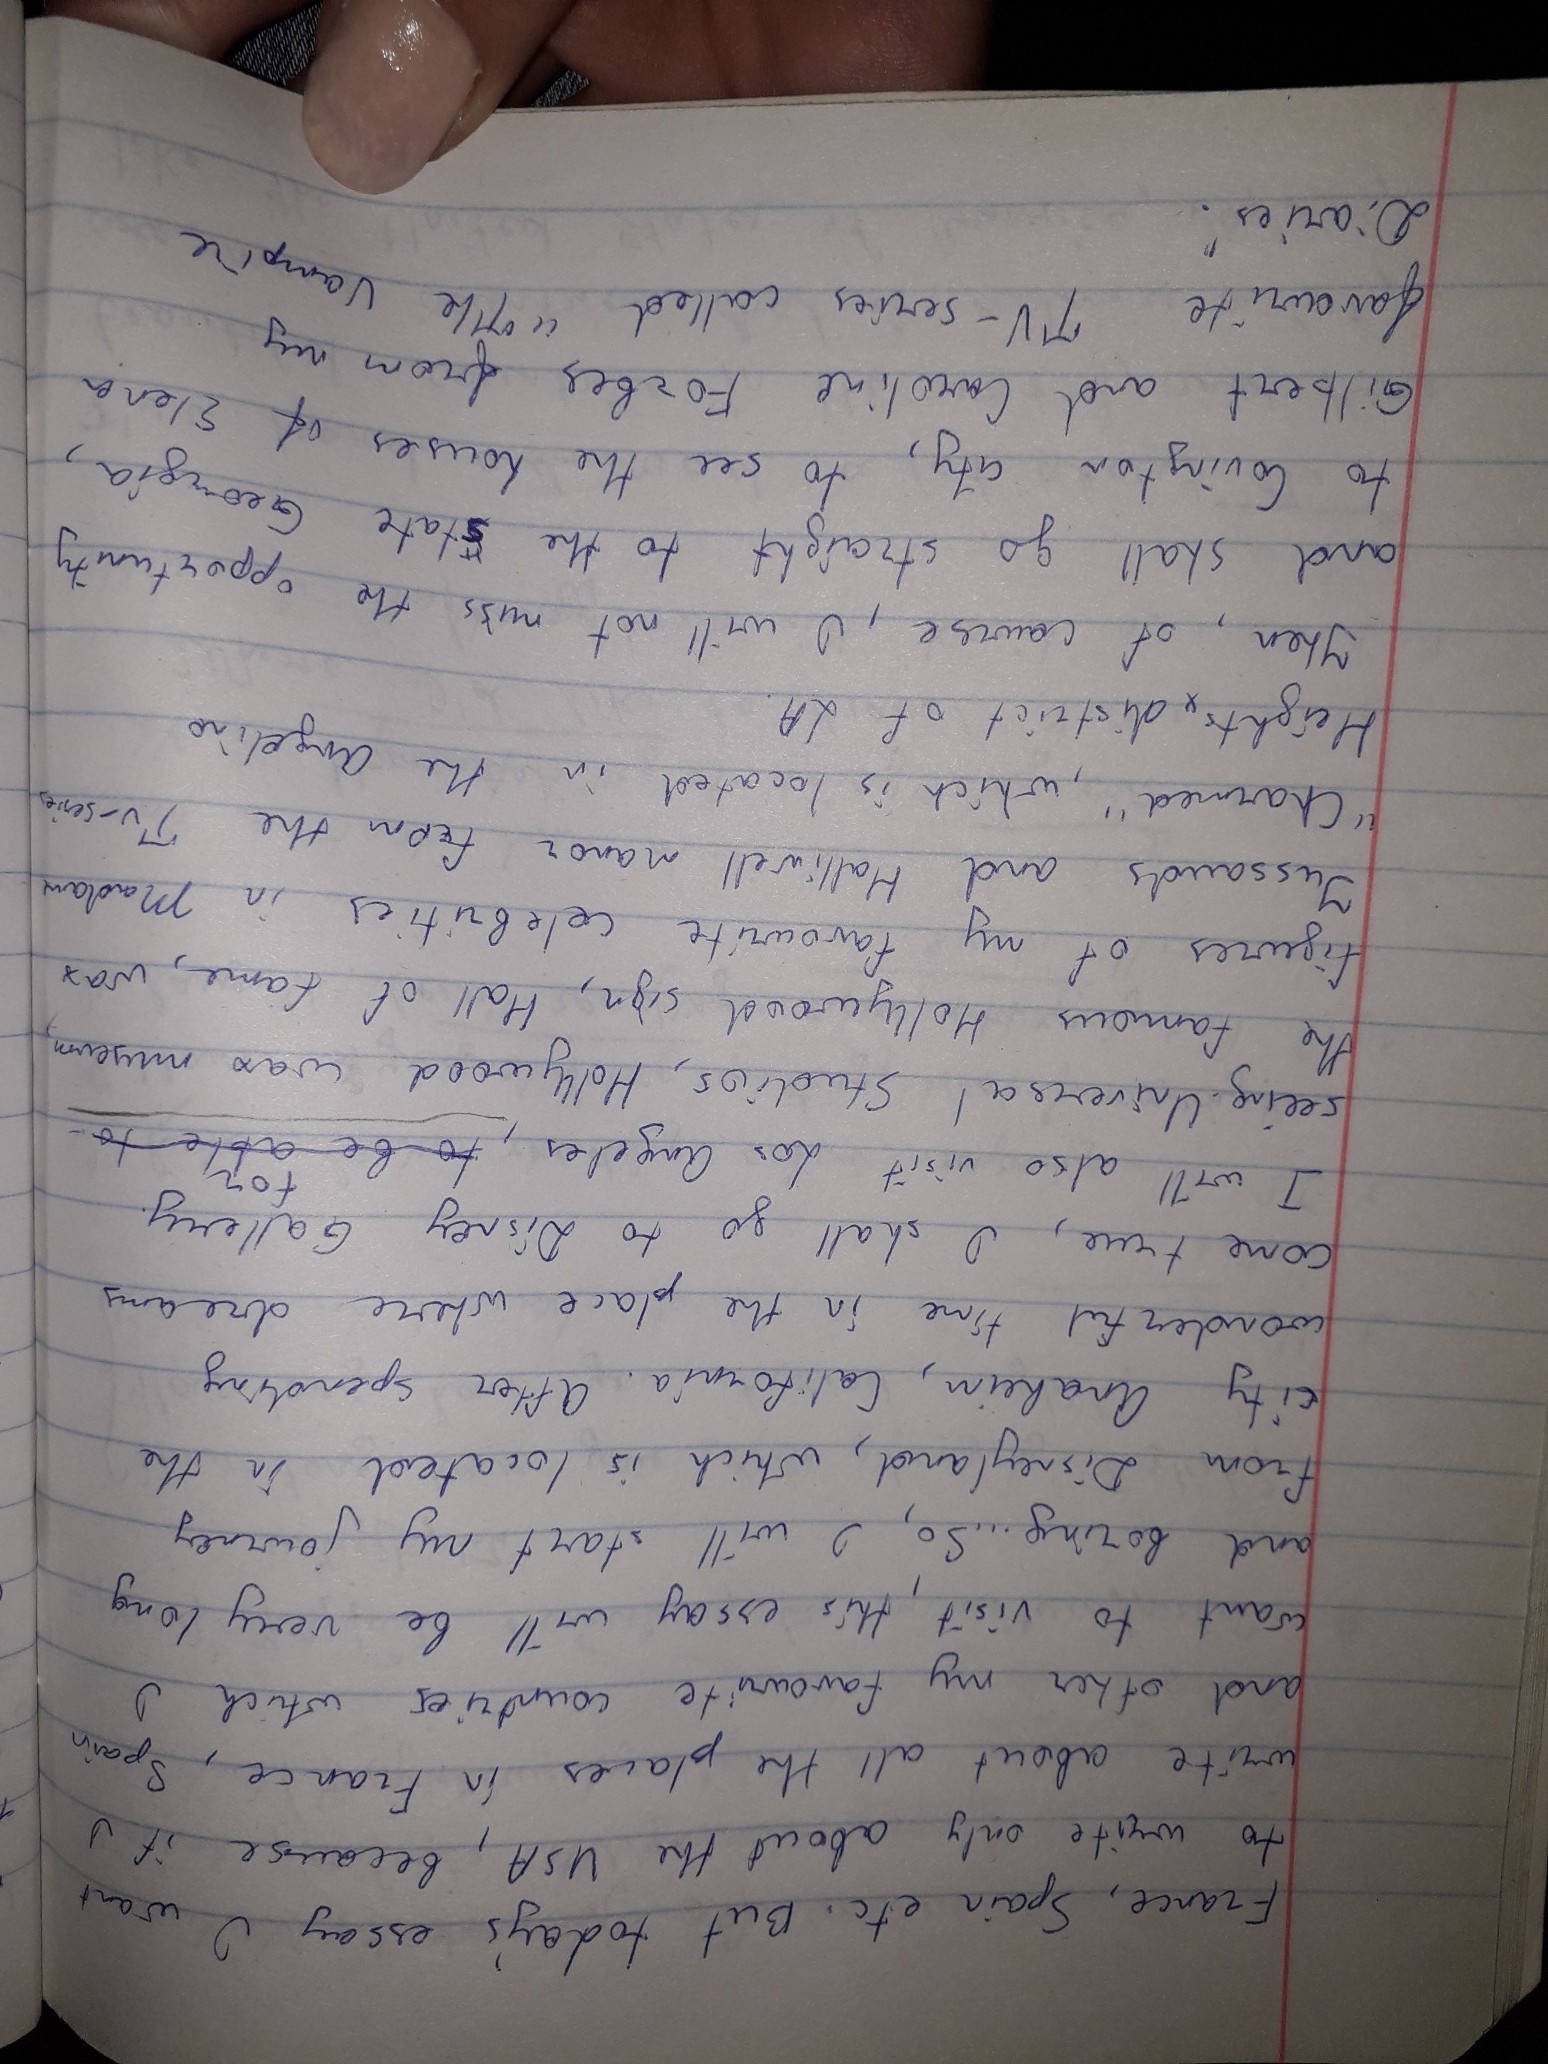 France, Spain etc. But today's essay I want
to write only about the USA, because if I
write about all the places in France, Spain
and other my favourite countries which I
want to visit, this essay will be very long
and boring... So, I will start my journey
from Disneyland, which is located in the
city Anaheim, California. After spending
wonderful time in the place where dreams
come true, I shall go to Disney Gallery.
I will also visit Los Angeles, to be able to for
seeing Universal Studios, Hollywood wax museum,
the famous Hollywood sign, Hall of Fame, wax
figures of my favourite celebrities in Madam
Tussauds and Halliwell manor from the TV-series
"Charmed", which is located in the Angelino
Heights district of LA.
Then, of course, I will not miss the opportunity
and shall go straight to the State Georgia,
to Covington city, to see the houses of Elena
Gilbert and Caroline Forbes from my
favourite TV-series called "The Vampire
Diaries".